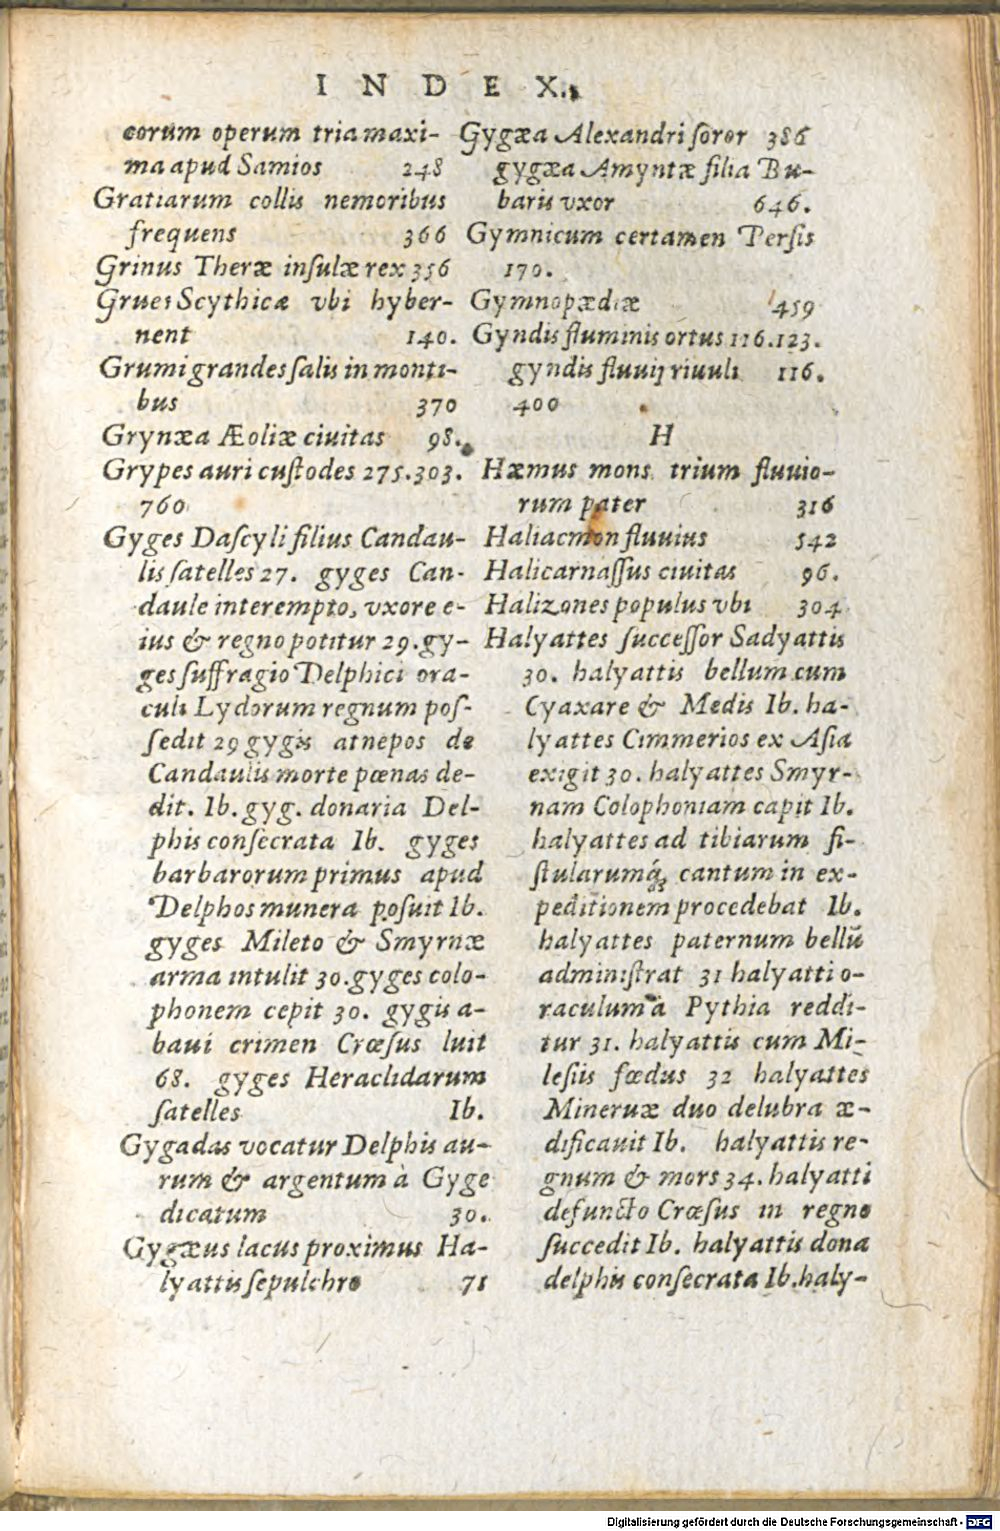 INDEX.
eorum operum tria maxi-
ma apud Samios 248
Gratiarum collis nemoribus
frequens 366
Grinus Theræ inſulæ rex 356
Grues Scythicæ vbi hyber-
nent 140.
Grumi grandes ſalis in monti-
bus 370
Grynæa Æoliæ ciuitas 98.
Grypes auri cuſtodes 275.303.
760
Gyges Daſcyli filius Candau-
lis ſatelles 27. gyges Can-
daule interempto, vxore e-
ius & regno potitur 29.gy-
ges ſuffragio Delphici ora-
culi Lydorum regnum poſ-
ſedit 29 gygis atnepos de
Candaulis morte pœnas de-
dit. Ib. gyg. donaria Del-
phis conſecrata Ib. gyges
barbarorum primus apud
Delphos munera poſuit Ib.
gyges Mileto & Smyrnæ
arma intulit 30.gyges colo-
phonem cepit 30. gygis a-
baui crimen Crœſus luit
68. gyges Heraclidarum
ſatelles Ib.
Gygadas vocatur Delphis au-
rum & argentum à Gyge
dicatum 30.
Gygæus lacus proximus Ha-
lyattis ſepulchro 71
Gygæa Alexandri ſoror 386
gygæa Amyntæ filia Bu-
baris vxor 646.
Gymnicum certamen Perſis
170.
Gymnopædiæ 459
Gyndis fluminis ortus 116.123.
gyndis fluuij riuuli 116.
400
H
Hæmus mons trium fluuio-
rum pater 316
Haliacmon fluuius 542
Halicarnaſſus ciuitas 96.
Halizones populus vbi 304
Halyattes ſucceſſor Sadyattis
30. halyattis bellum cum
Cyaxare & Medis Ib. ha-
lyattes Cimmerios ex Aſia
exigit 30. halyattes Smyr-
nam Colophoniam capit Ib.
halyattes ad tibiarum fi-
ſtularumq́; cantum in ex-
peditionem procedebat Ib.
halyattes paternum bellũ
adminiſtrat 31 halyatti o-
raculum à Pythia reddi-
tur 31. halyattis cum Mi-
leſiis fœdus 32 halyattes
Mineruæ duo delubra æ-
dificauit Ib. halyattis re-
gnum & mors 34. halyatti
defuncto Crœſus in regno
ſuccedit Ib. halyattis dona
delphis conſecrata Ib.haly-
Digitalisierung gefördert durch die Deutsche Forschungsgemeinschaft - DFG